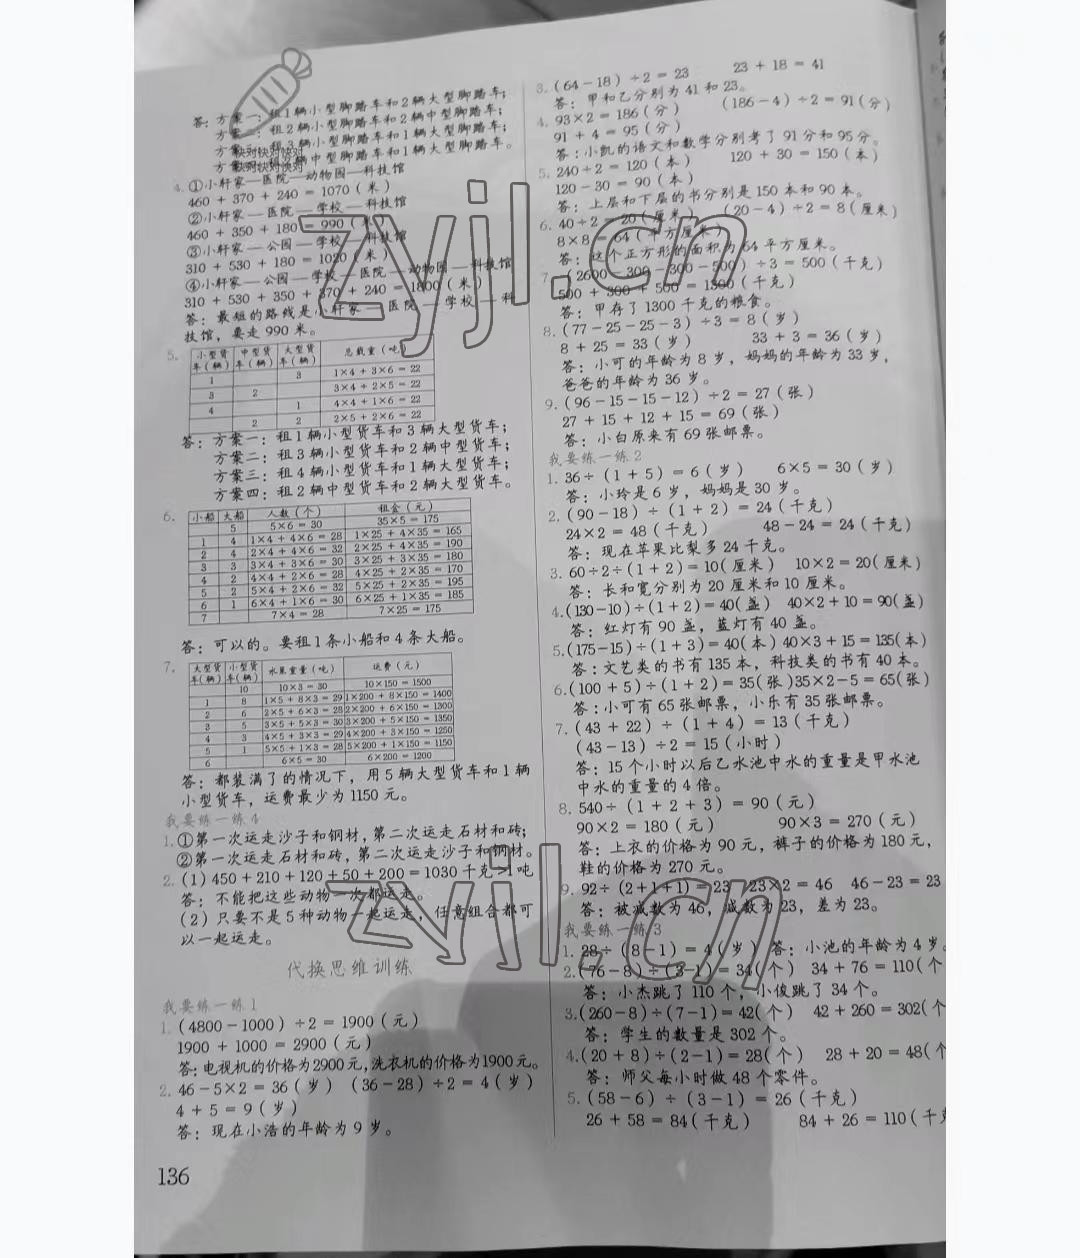 答：方案一：租1辆小型脚踏车和2辆大型脚踏车；
方案二：租2辆小型脚踏车和2辆中型脚踏车；
方案三：租3辆小型脚踏车和1辆大型脚踏车；
中型脚踏车和1辆大型脚踏车。
快对快对快对
快对快对快对
4. ①小轩家—医院—动物园—科技馆
460 + 370 + 240 = 1070（米）
②小轩家—医院—学校—科技馆
460 + 350 + 180 = 990（米）
③小轩家—公园—学校—科技馆
310 + 530 + 180 = 1020（米）
④小轩家—公园—学校—医院—动物园—科技馆
310 + 530 + 350 + 370 + 240 = 1800（米）
答：最短的路线是小轩家—医院—学校—科
技馆，要走 990 米。
5.
小型货车（辆） 中型货车（辆） 大型货车（辆） 总载重（吨）
1 3 1×4 + 3×6 = 22
3 2 3×4 + 2×5 = 22
4 1 4×4 + 1×6 = 22
2 2 2×5 + 2×6 = 22
答：方案一：租1辆小型货车和3辆大型货车；
方案二：租3辆小型货车和2辆中型货车；
方案三：租4辆小型货车和1辆大型货车；
方案四：租2辆中型货车和2辆大型货车。
6.
小船 大船 人数（个） 租金（元）
5 5×6 = 30 35×5 = 175
1 4 1×4 + 4×6 = 28 1×25 + 4×35 = 165
2 4 2×4 + 4×6 = 32 2×25 + 4×35 = 190
3 3 3×4 + 3×6 = 30 3×25 + 3×35 = 180
4 2 4×4 + 2×6 = 28 4×25 + 2×35 = 170
5 2 5×4 + 2×6 = 32 5×25 + 2×35 = 195
6 1 6×4 + 1×6 = 30 6×25 + 1×35 = 185
7 7×4 = 28 7×25 = 175
答：可以的。要租1条小船和4条大船。
7.
大型货车（辆） 小型货车（辆） 水果重量（吨） 运费（元）
10 10×3 = 30 10×150 = 1500
1 8 1×5 + 8×3 = 29 1×200 + 8×150 = 1400
2 6 2×5 + 6×3 = 28 2×200 + 6×150 = 1300
3 5 3×5 + 5×3 = 30 3×200 + 5×150 = 1350
4 3 4×5 + 3×3 = 29 4×200 + 3×150 = 1250
5 1 5×5 + 1×3 = 28 5×200 + 1×150 = 1150
6 6×5 = 30 6×200 = 1200
答：都装满了的情况下，用5辆大型货车和1辆
小型货车，运费最少为1150元。
我要练一练4
1. ①第一次运走沙子和钢材，第二次运走石材和砖；
②第一次运走石材和砖，第二次运走沙子和钢材。
2. （1）450 + 210 + 120 + 50 + 200 = 1030 千克 >1吨
答：不能把这些动物一次都运走。
（2）只要不是5种动物一起运走，任意组合都可
以一起运走。
代换思维训练
我要练一练1
1. （4800 − 1000）÷2 = 1900（元）
1900 + 1000 = 2900（元）
答：电视机的价格为2900元，洗衣机的价格为1900元。
2. 46 − 5×2 = 36（岁） （36 − 28）÷2 = 4（岁）
4 + 5 = 9（岁）
答：现在小浩的年龄为9岁。
136
3. （64 − 18）÷2 = 23 23 + 18 = 41
答：甲和乙分别为41和23。
4. 93×2 = 186（分） （186 − 4）÷2 = 91（分）
91 + 4 = 95（分）
答：小凯的语文和数学分别考了91分和95分。
5. 240÷2 = 120（本） 120 + 30 = 150（本）
120 − 30 = 90（本）
答：上层和下层的书分别是150本和90本。
6. 40÷2 = 20（厘米） （20 − 4）÷2 = 8（厘米）
8×8 = 64（平方厘米）
答：这个正方形的面积为64平方厘米。
7. （2600 − 300 − 300 − 500）÷3 = 500（千克）
500 + 300 + 500 = 1300（千克）
答：甲存了1300千克的粮食。
8. （77 − 25 − 25 − 3）÷3 = 8（岁）
8 + 25 = 33（岁） 33 + 3 = 36（岁）
答：小可的年龄为8岁，妈妈的年龄为33岁，
爸爸的年龄为36岁。
9. （96 − 15 − 15 − 12）÷2 = 27（张）
27 + 15 + 12 + 15 = 69（张）
答：小白原来有69张邮票。
我要练一练2
1. 36÷（1 + 5）= 6（岁） 6×5 = 30（岁）
答：小玲是6岁，妈妈是30岁。
2. （90 − 18）÷（1 + 2）= 24（千克）
24×2 = 48（千克） 48 − 24 = 24（千克）
答：现在苹果比梨多24千克。
3. 60÷2÷（1 + 2）= 10（厘米） 10×2 = 20（厘米）
答：长和宽分别为20厘米和10厘米。
4.（130−10）÷（1+2）= 40（盏） 40×2+10 = 90（盏）
答：红灯有90盏，蓝灯有40盏。
5.（175−15）÷（1+3）= 40（本）40×3+15 = 135（本）
答：文艺类的书有135本，科技类的书有40本。
6.（100 + 5）÷（1 + 2）= 35（张）35×2−5 = 65（张）
答：小可有65张邮票，小乐有35张邮票。
7. （43 + 22）÷（1 + 4）= 13（千克）
（43 − 13）÷2 = 15（小时）
答：15个小时以后乙水池中水的重量是甲水池
中水的重量的4倍。
8. 540÷（1 + 2 + 3）= 90（元）
90×2 = 180（元） 90×3 = 270（元）
答：上衣的价格为90元，裤子的价格为180元，
鞋的价格为270元。
9. 92÷（2+1+1）= 23 23×2 = 46 46 − 23 = 23
答：被减数为46，减数为23，差为23。
我要练一练3
1. 28÷（8 − 1）= 4（岁） 答：小池的年龄为4岁。
2.（76 − 8）÷（3−1）= 34（个） 34 + 76 = 110（个
答：小杰跳了110个，小俊跳了34个。
3.（260−8）÷（7−1）= 42（个） 42 + 260 = 302（个
答：学生的数量是302个。
4.（20 + 8）÷（2−1）= 28（个） 28 + 20 = 48（个
答：师父每小时做48个零件。
5. （58 − 6）÷（3 − 1）= 26（千克）
26 + 58 = 84（千克） 84 + 26 = 110（千克
zyjl.cn
zyjl.cn